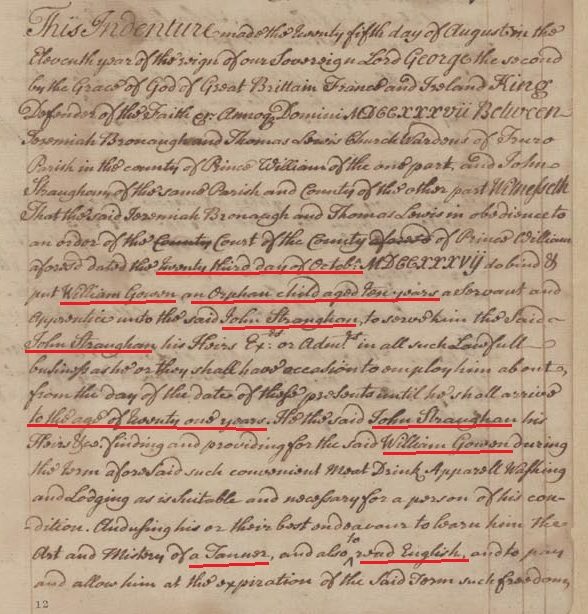 This Indenture made the twenty fifth day of August in the
Eleventh year of the reign of our Sovereign Lord George the second
by the Grace of God of Great Brittain France and Ireland King
Defender of the Faith &c Annoq Domini MDCCXXXVii Between
Jeremiah Bronaugh and Thomas Lewis Church Wardens of Truro
Parish in the county of Prince William of the one part, and John
Straughan of the same Parish and County of the other part Witnesseth
That the said Jeremiah Bronaugh and Thomas Lewis in obedience to
an order of the County Court of the County aforesd of Prince William
aforesd dated the twenty third day of Octobr MDCCXXXVij do bind &
put William Gowen an Orphan child aged ten years a servant and
Apprentice unto the said John Straughan, to serve him the said
John Straughan his Heirs Exrs or Admrs in all such Lawfull
business as he or they shall have occasion to employ him about,
from the day of the date of these presents until he shall arrive
to the age of twenty one years. He the said John Straughan his
Heirs &c finding and providing for the said William Gowen during
the term aforesaid such convenient Meat Drink Apparell Washing
and Lodging as is suitable and necessary for a person of his con-
dition. And using his or their best endeavour to learn him the
Art and Mistery of a Tanner, and also to read English, and to pay
and allow him at the expiration of the said Term such freedom
12